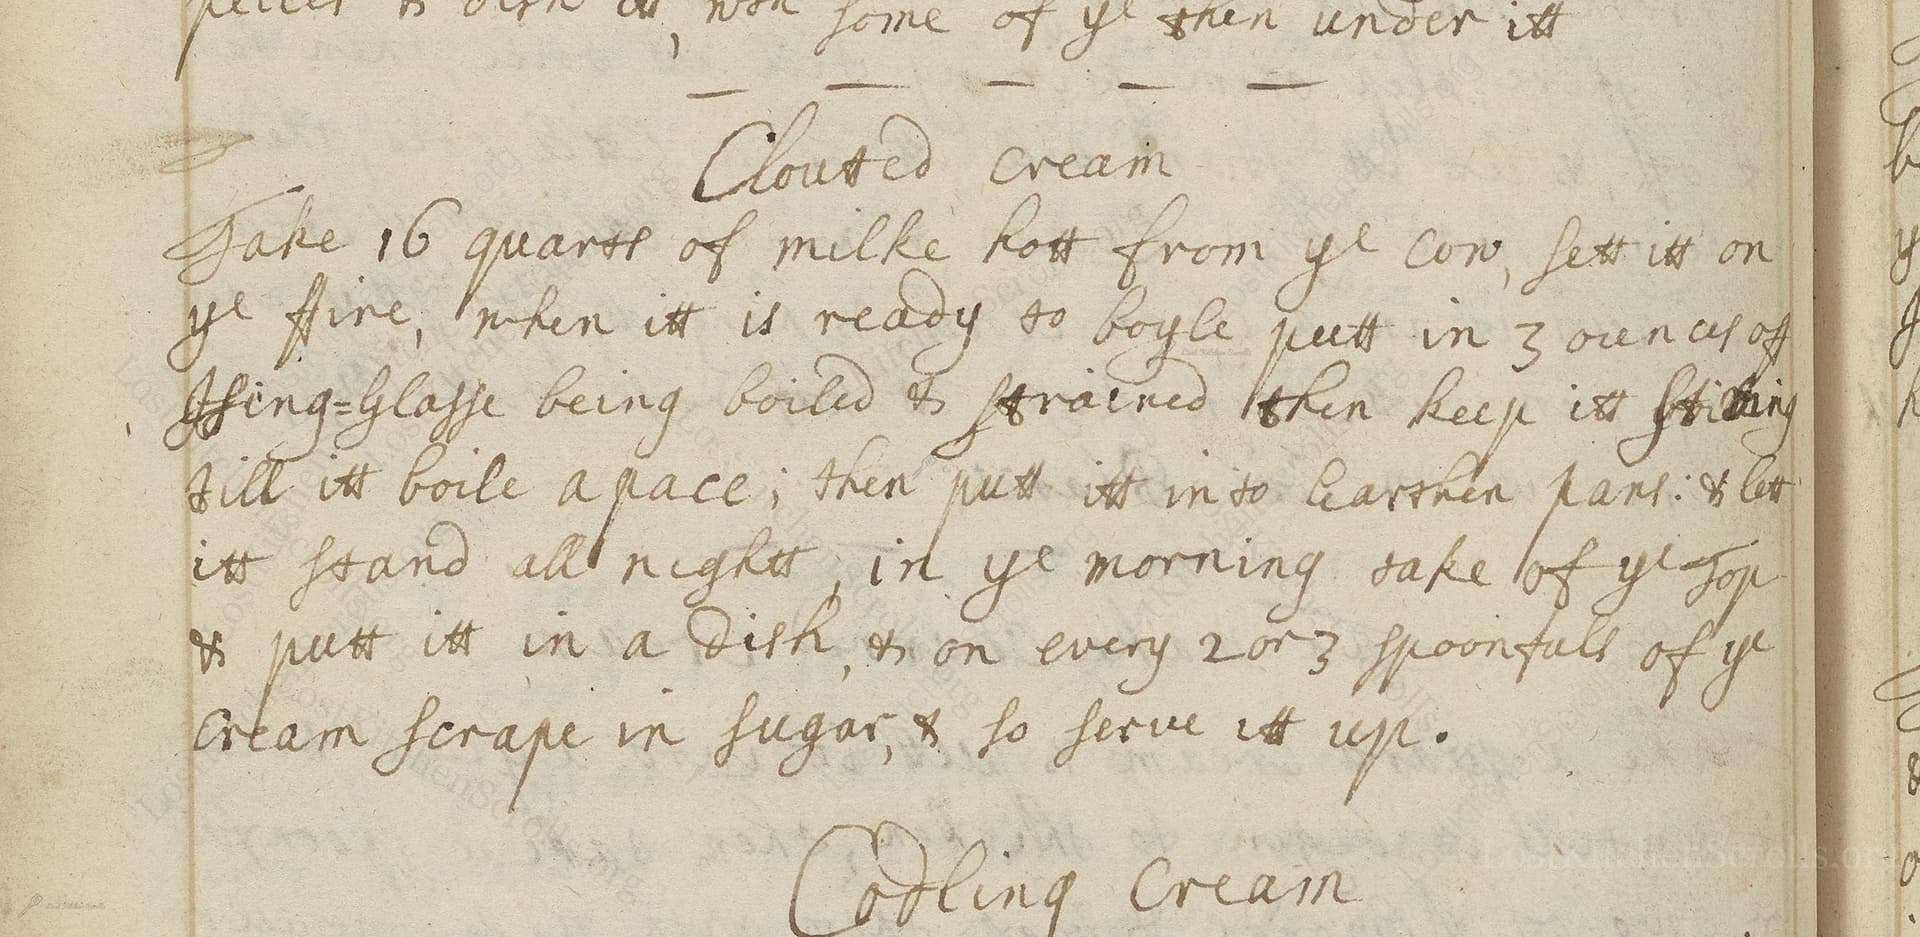 peices & dish itt, with some of ye then under itt
Cloutted cream
Take 16 quarts of milke hott from ye cow, sett itt on
ye ffire, when itt is ready to boyle putt in 3 ounces off
Ising=Glasse being boiled & strained then keep itt stiring
till itt boile apace; then putt itt into Earthen pans: & lett
itt stand all nightt, in ye morning take of ye Top
& putt itt in a dish, & on every 2 or 3 spoonfulls of ye
cream scrape in sugar, & so serve itt up.
Codling Cream
LostKitchenScrolls.org